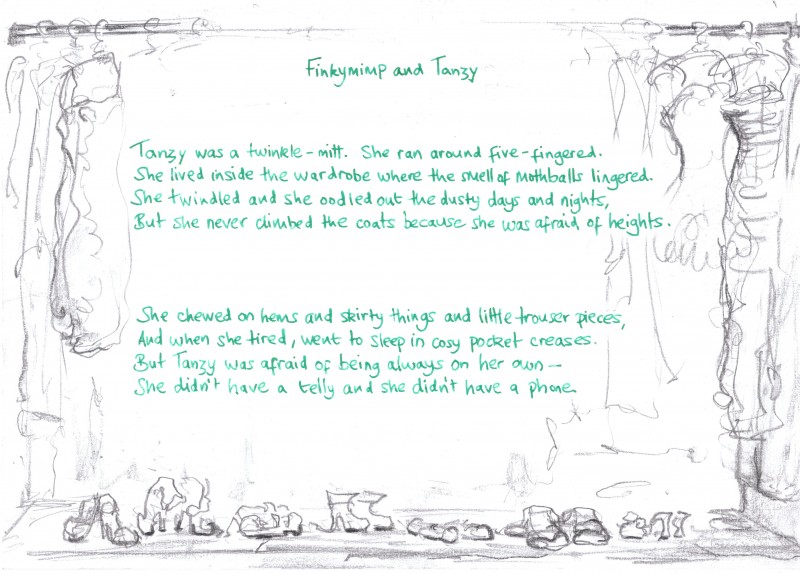 Finkymimp and Tanzy
Tanzy was a twinkle-mitt. She ran around five-fingered.
She lived inside the wardrobe where the smell of mothballs lingered.
She twindled and she oodled out the dusty days and nights,
But she never climbed the coats because she was afraid of heights.
She chewed on hems and skirty things and little trouser pieces,
And when she tired, went to sleep in cosy pocket creases.
But Tanzy was afraid of being always on her own –
She didn't have a telly and she didn't have a phone.